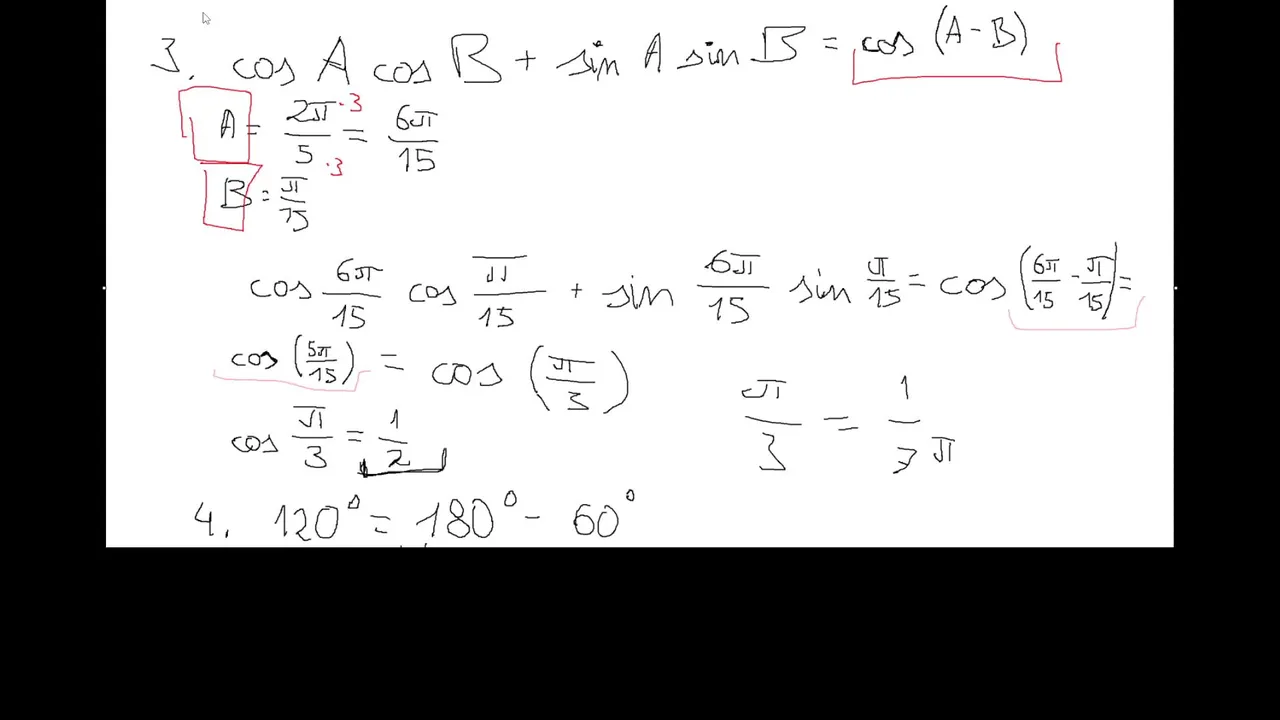 3. cos A cos B + sin A sin B = cos (A - B)
A = 2π/5 ·3/·3 = 6π/15
B = π/15
cos 6π/15 cos π/15 + sin 6π/15 sin π/15 = cos (6π/15 - π/15) =
cos (5π/15) = cos (π/3)
cos π/3 = 1/2
π/3 = 1/3 π
4. 120° = 180° - 60°